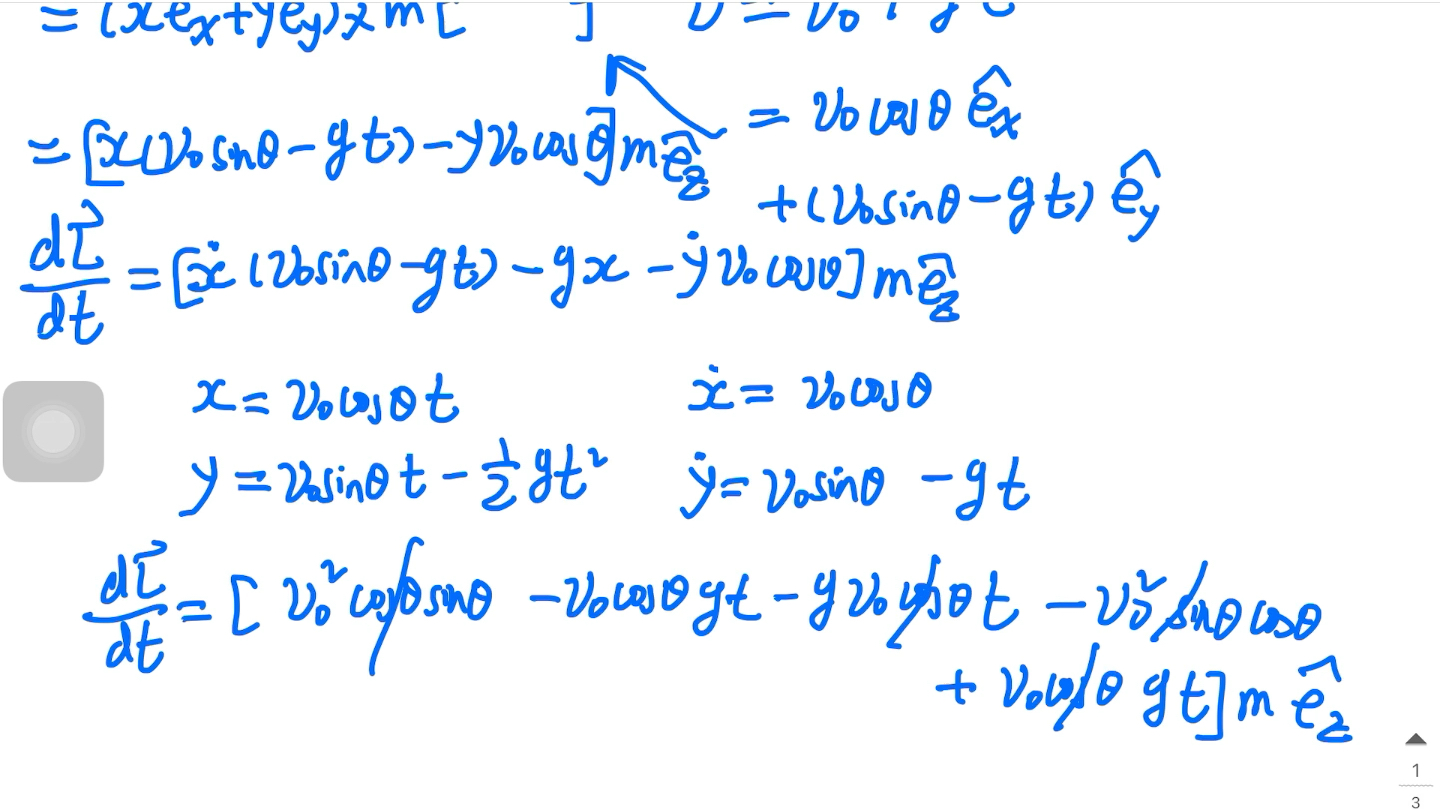 = (xe_x+ye_y)×m[ ] v = v_0 + g t
= [x(v_0 sinθ - gt) - y v_0 cosθ] m \hat{e_z}
= v_0 cosθ \hat{e_x}
+ (v_0 sinθ - gt) \hat{e_y}
\frac{d\vec{L}}{dt} = [ẋ (v_0 sinθ - gt) - gx - ẏ v_0 cosθ] m \hat{e_z}
x = v_0 cosθ t ẋ = v_0 cosθ
y = v_0 sinθ t - \frac{1}{2} gt² ẏ = v_0 sinθ - gt
\frac{d\vec{L}}{dt} = [ v_0² cosθ sinθ - v_0 cosθ gt - g v_0 cosθ t - v_0² sinθ cosθ
+ v_0 cosθ gt] m \hat{e_z}
1
3